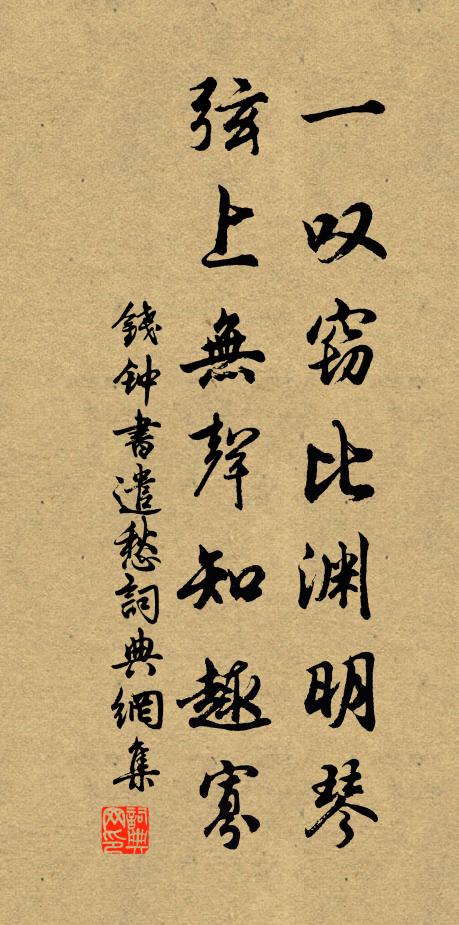 一叹窃比渊明琴
弦上無聲知趣寡
錢钟書遣愁詞典網集
詞典网印